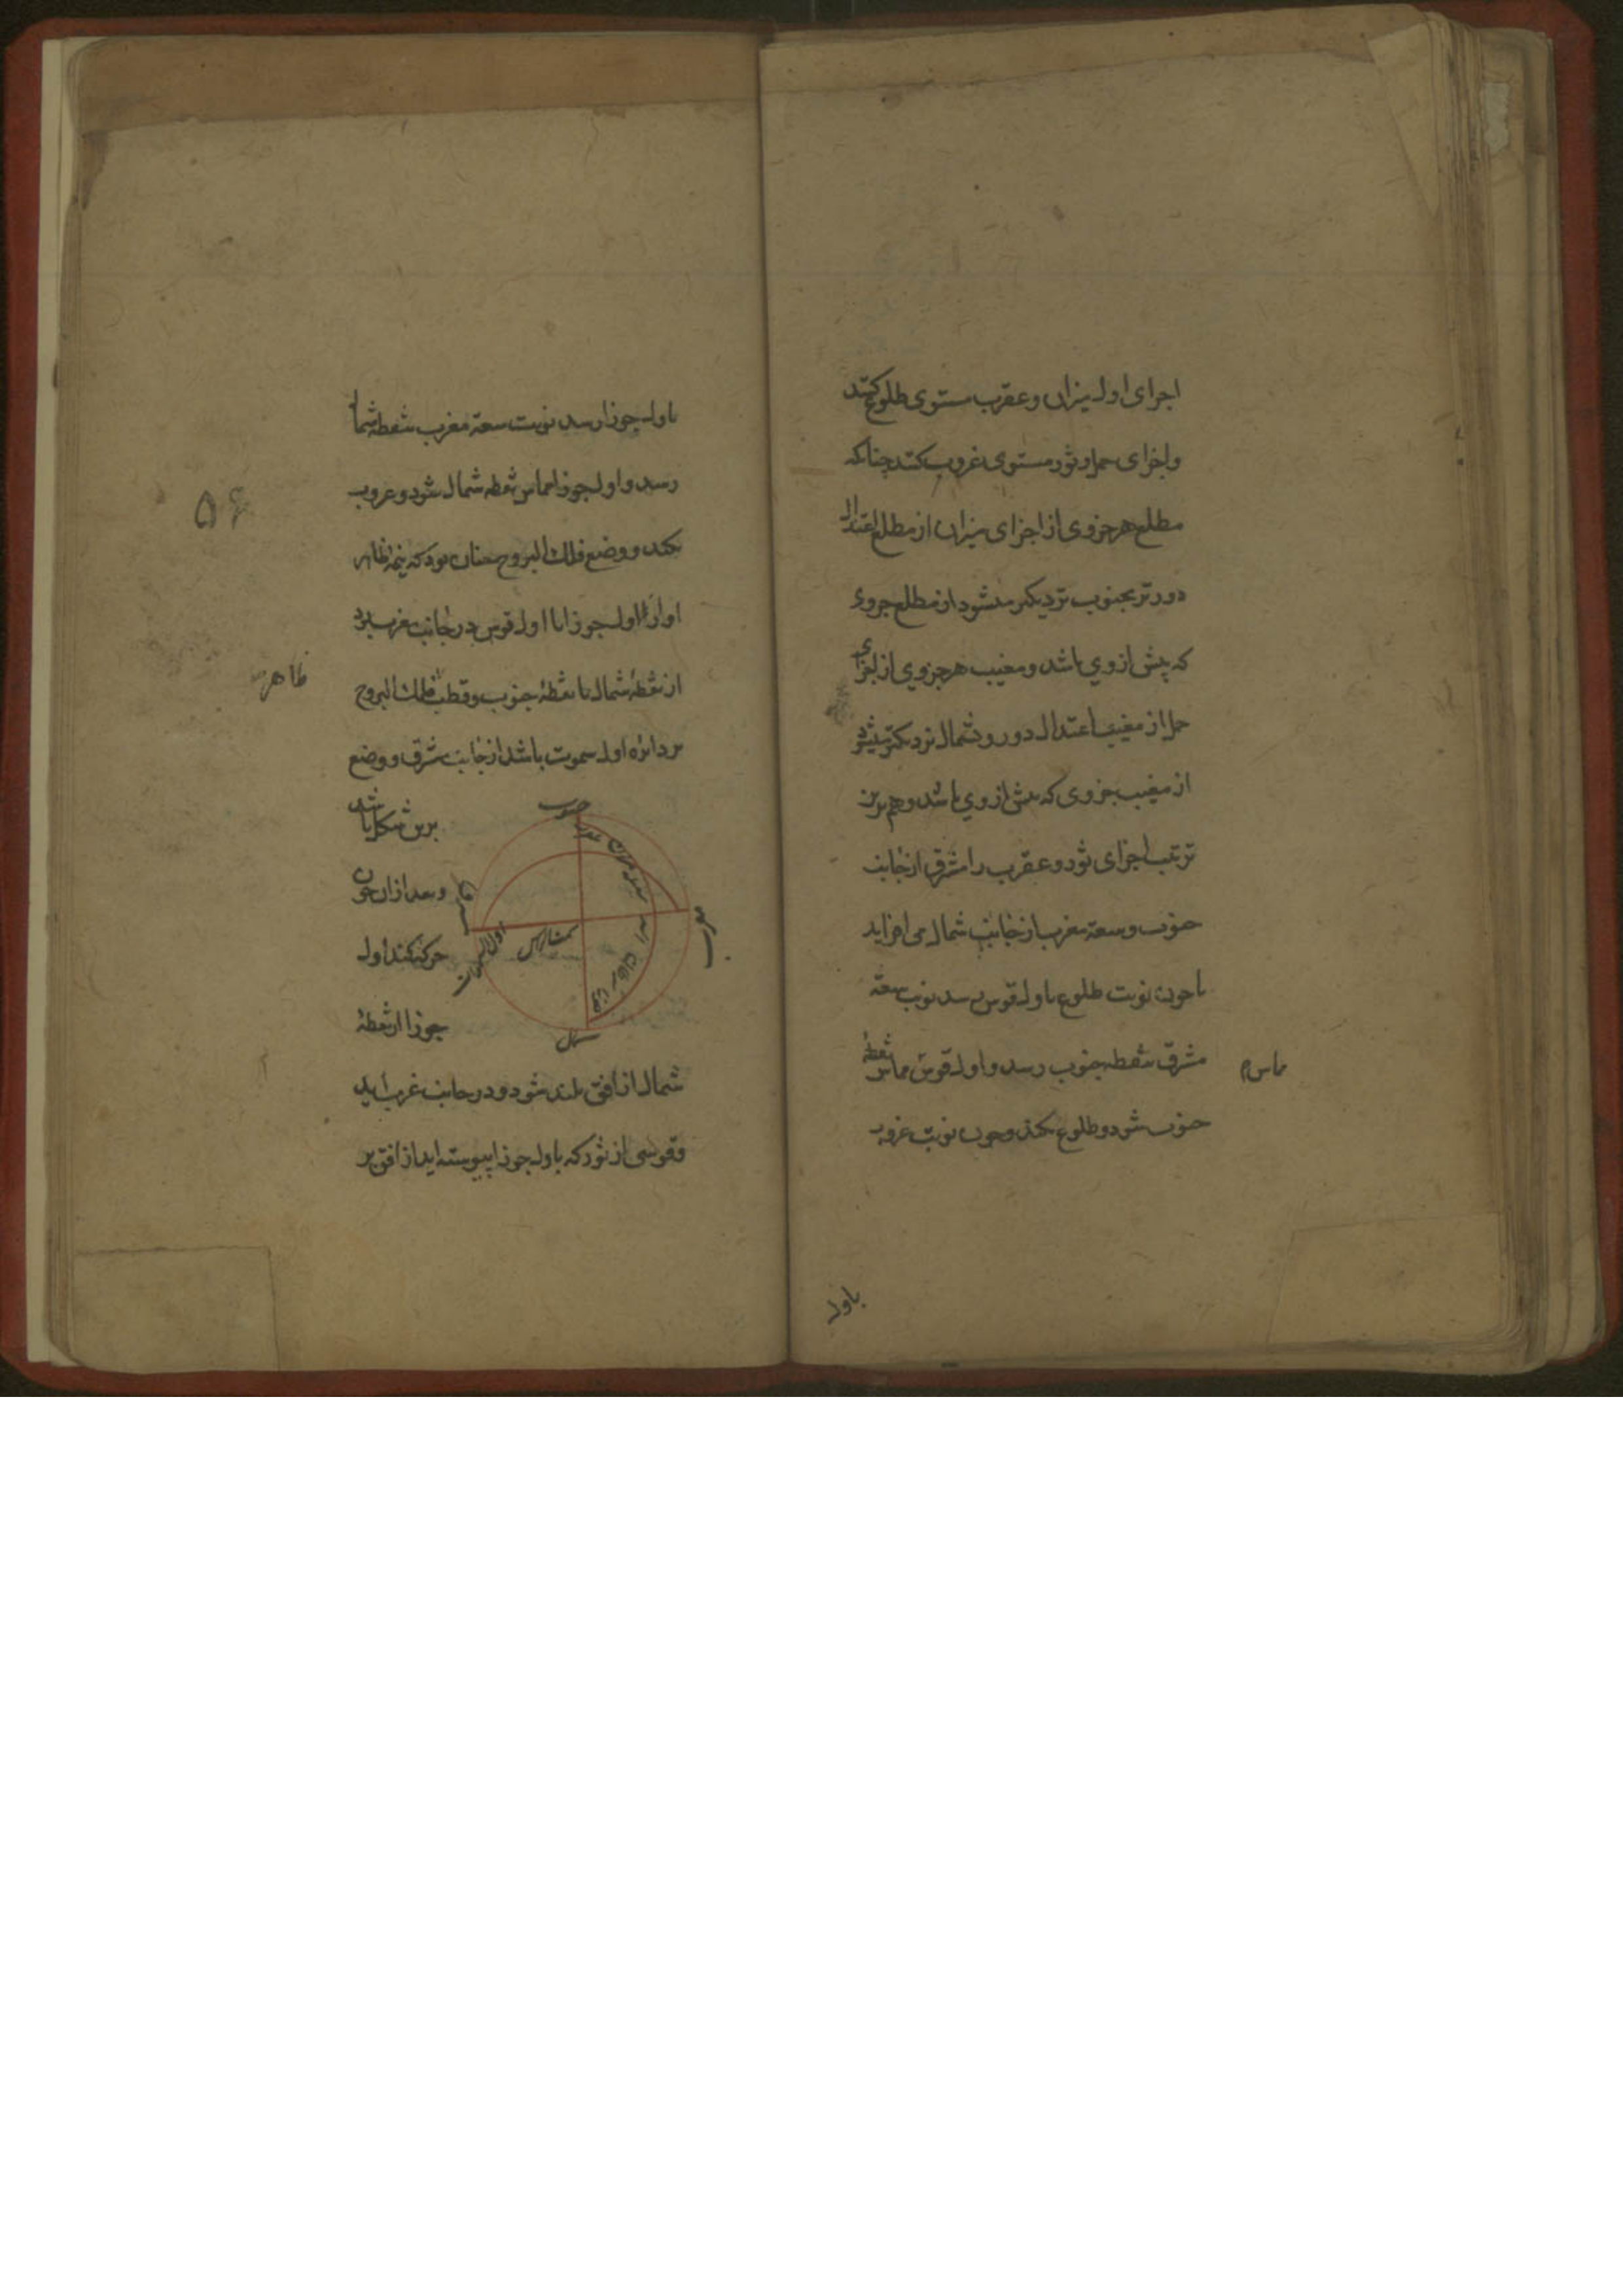 اجزای اول میزان و عقرب مستوی طلوع کنند
و اجزای حمل و ثور مستوی غروب کنند چنانکه
مطلع هر جزوی از اجزای میزان از مطلع اعتدال
دورتر بجنوب نزدیکتر میشود از مطلع جزوی
که پیش از وی باشد و مغیب هر جزوی از اجزای
حمل از مغیب اعتدال دور و بشمال نزدیکتر میشود
از مغیب جزوی که پیش از وی باشد و هم برین
ترتیب اجزای ثور و عقرب را مشرق از جانب
جنوب و سعة مغرب از جانب شمال می افزاید
تا چون نوبت طلوع باول قوس رسد نوبت سعة
مشرق بنقطه جنوب رسد و اول قوس مماس نقطهٔ
مماس
جنوب شود و طلوع نکند و چون نوبت غروب
باول
باول جوزا رسد نوبت سعة مغرب بنقطه شمال
رسد و اول جوزا مماس نقطه شمال شود و غروب
۵۶
نکند و وضع فلك البروج چنان بود که نیمه ظاهر
او از اول جوزا تا اول قوس در جانب مغرب بود
از نقطهٔ شمال تا نقطهٔ جنوب و قطب فلك البروج
ظاهر
بر دائره اول سموت باشد از جانب مشرق و وضع
برین شکل باشد
و بعد از ان چون
حرکت کند اول
جوزا از نقطهٔ
جنوب
مغرب
شمال
اول السموت
شمال از افق بلند شود و در جانب غرب آید
و قوسی از ثور که باول جوزا پیوسته اید از افق بر